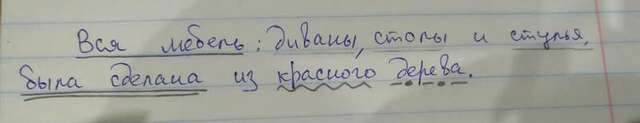 Вся мебель: диваны, столы и стулья,
была сделана из красного дерева.